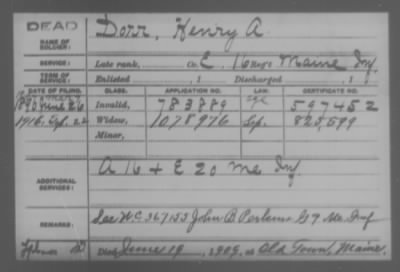 DEAD
NAME OF SOLDIER: Dorr, Henry A.
SERVICE: Late rank, Co. E, 16 Reg't Maine Inf.
TERM OF SERVICE: Enlisted , 1 Discharged , 1
DATE OF FILING. CLASS. APPLICATION NO. LAW. CERTIFICATE NO.
1890 June 26 Invalid, 783889 597452
1916, Sep. 22 Widow, 1078976 Sep. 825,599
Minor,
ADDITIONAL SERVICES: A 16 & E 20 Me Inf
REMARKS: See W.C. 367153 John B Perkins G 9 Me. Inf
Died June 19, 1909, at Old Town, Maine.